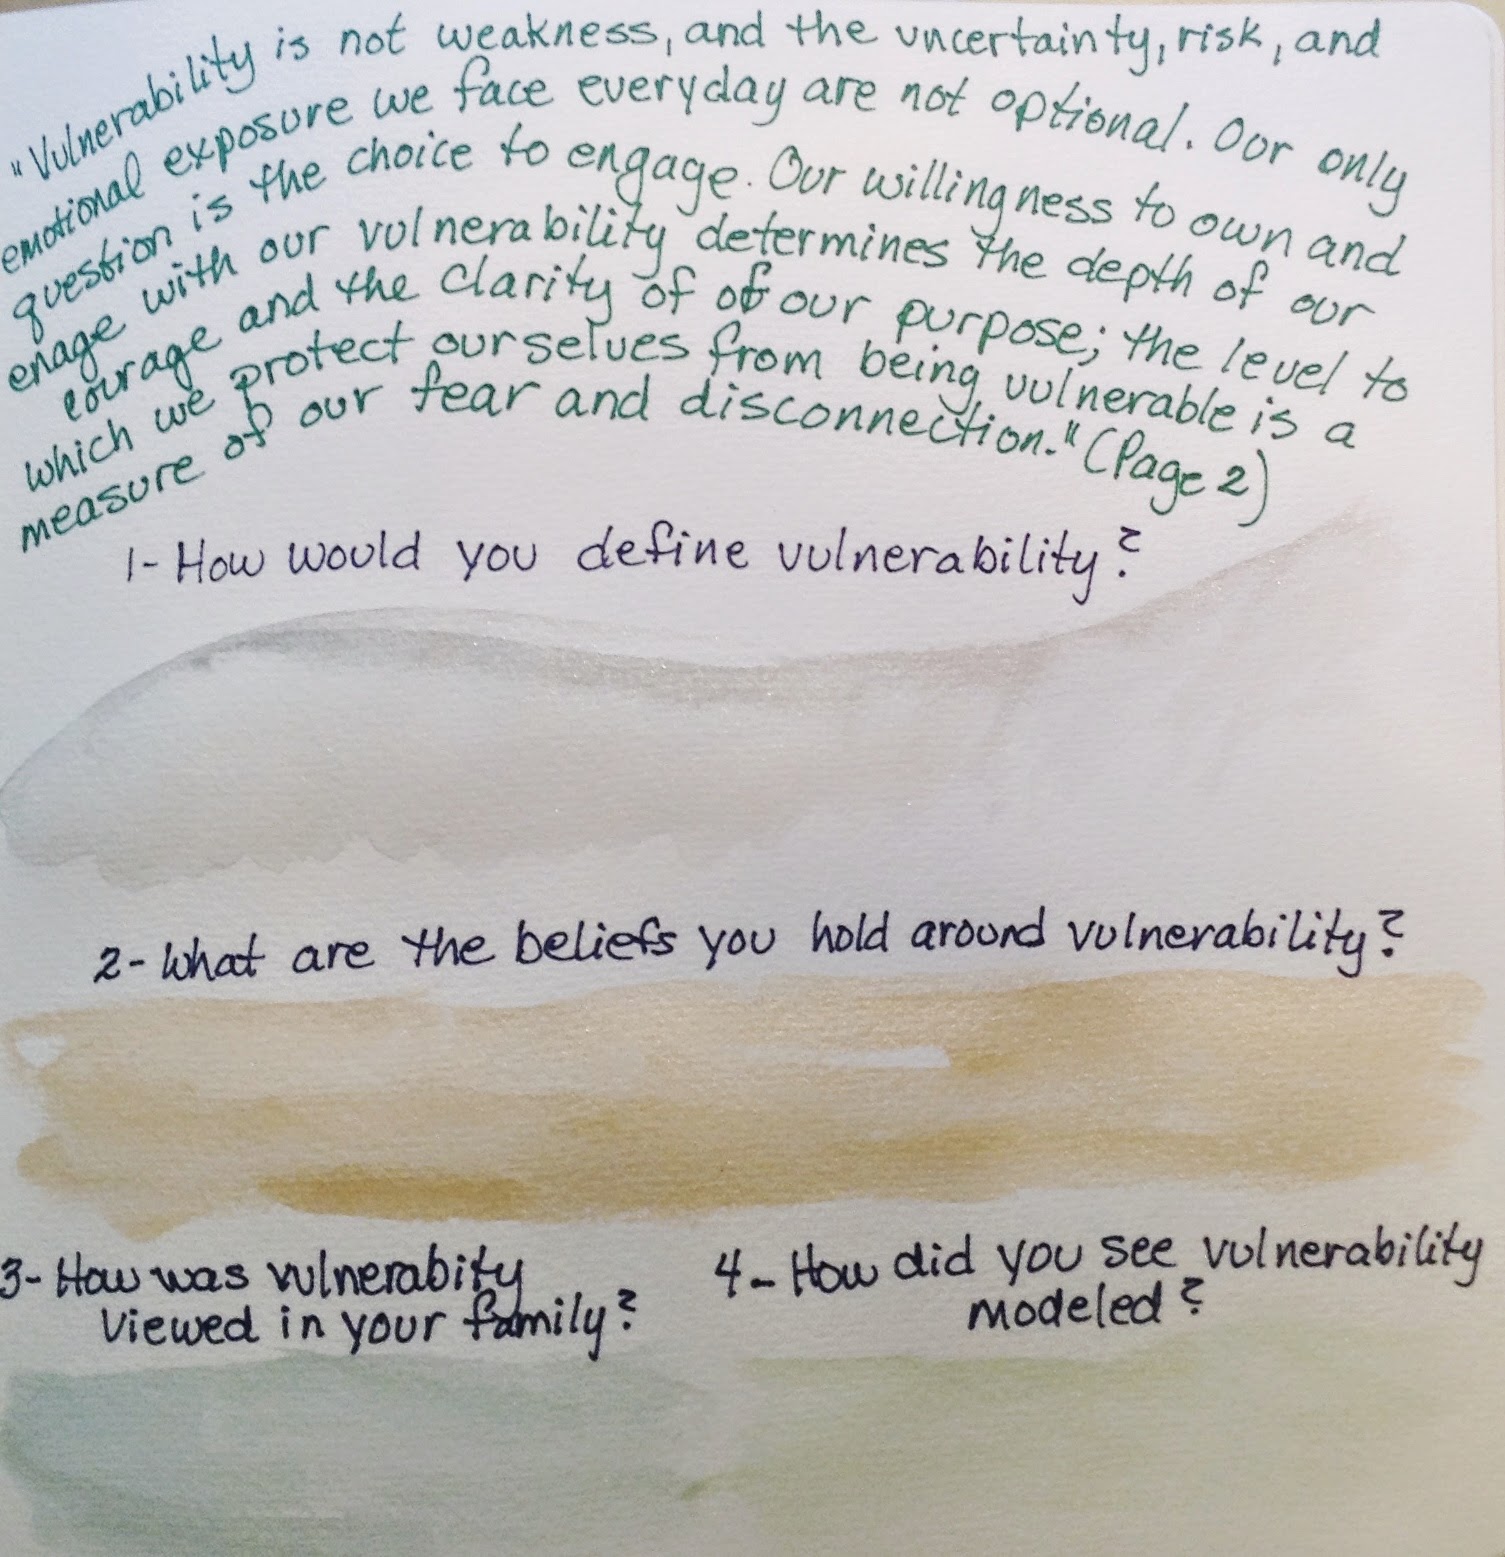 "Vulnerability is not weakness, and the uncertainty, risk, and
emotional exposure we face everyday are not optional. Our only
question is the choice to engage. Our willingness to own and
enage with our vulnerability determines the depth of our
courage and the clarity of of our purpose; the level to
which we protect ourselves from being vulnerable is a
measure of our fear and disconnection." (Page 2)
1- How would you define vulnerability?
2- What are the beliefs you hold around vulnerability?
3- How was vulnerabity
viewed in your family?
4- How did you see vulnerability
modeled?